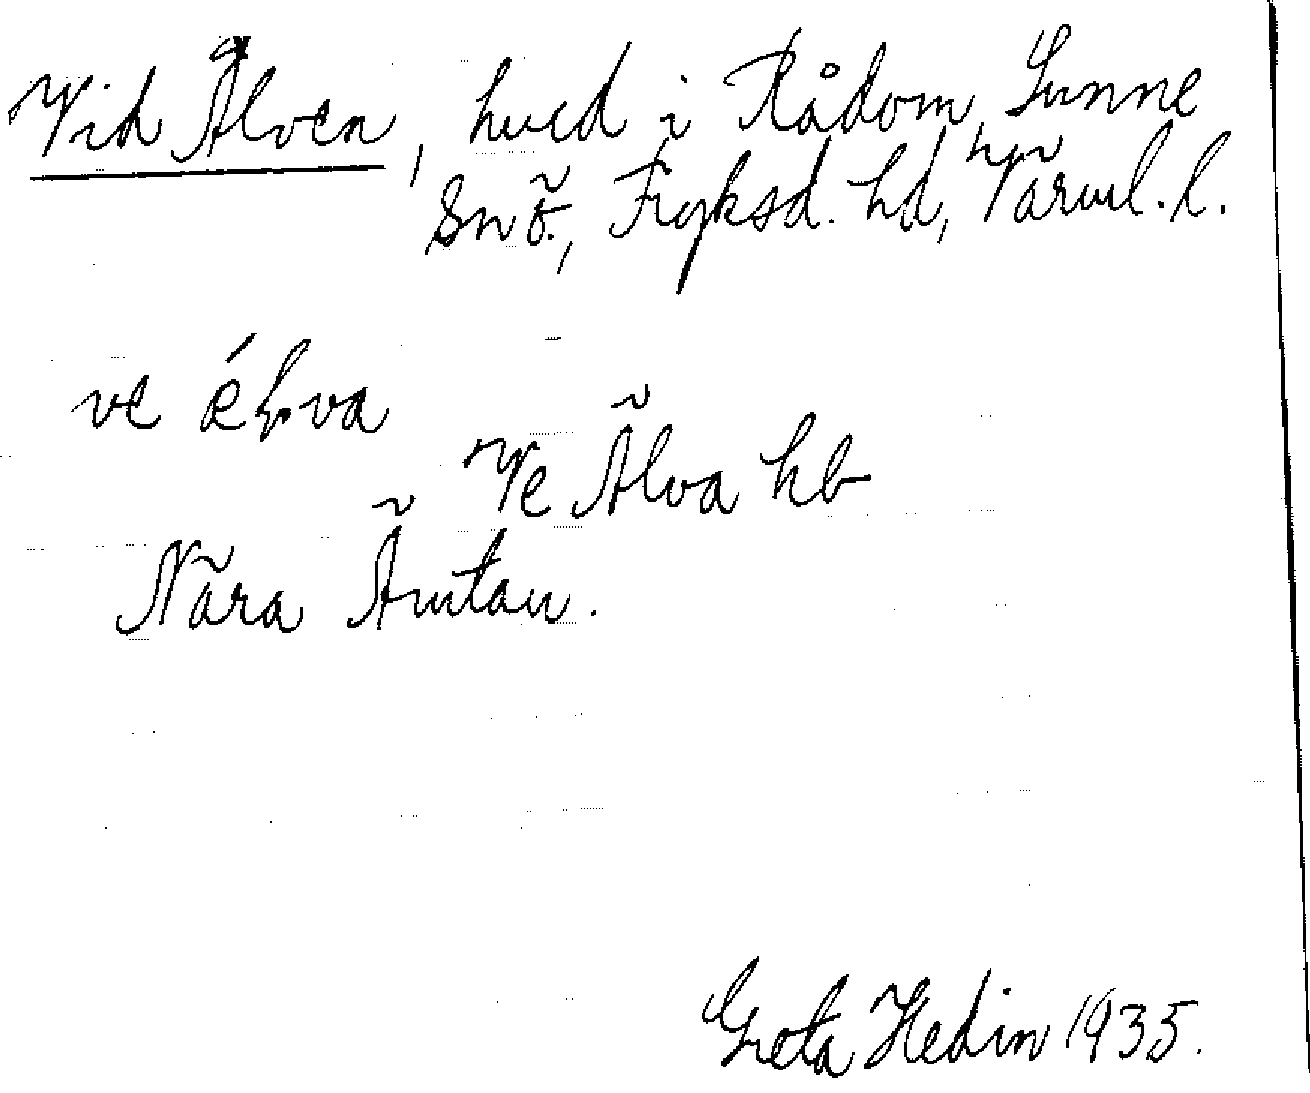 Vid Älven, hvcd i Rådom, Sunne
Snö., Fryksd. hd, Värml. l.
ve ǽḷva
Ve Älva hb
Nära Ämtan.
Greta Hedin 1935.